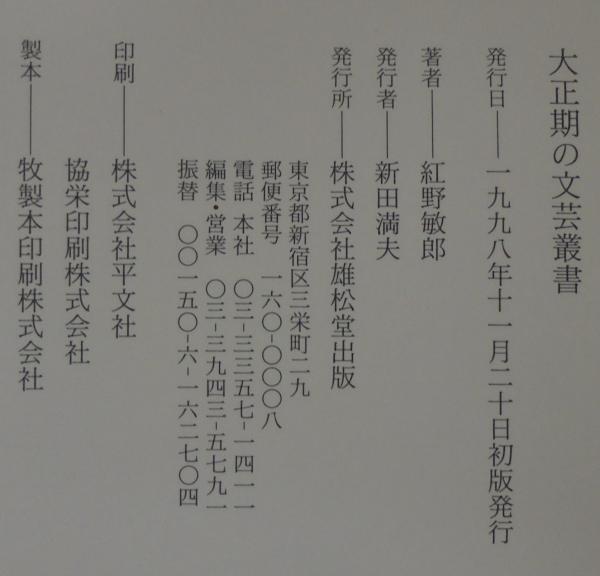 大正期の文芸叢書
発行日──一九九八年十一月二十日初版発行
著者──紅野敏郎
発行者──新田満夫
発行所──株式会社雄松堂出版
東京都新宿区三栄町二九
郵便番号 一六〇-〇〇〇八
電話 本社 〇三-三三五七-一四一一
編集・営業 〇三-三九四三-五七九一
振替 〇〇一五〇-六-一六二七〇四
印刷──株式会社平文社
協栄印刷株式会社
製本──牧製本印刷株式会社